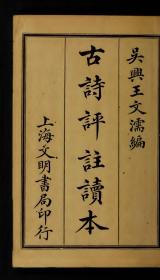 吳興王文濡編
古詩評註讀本
上海文明書局印行